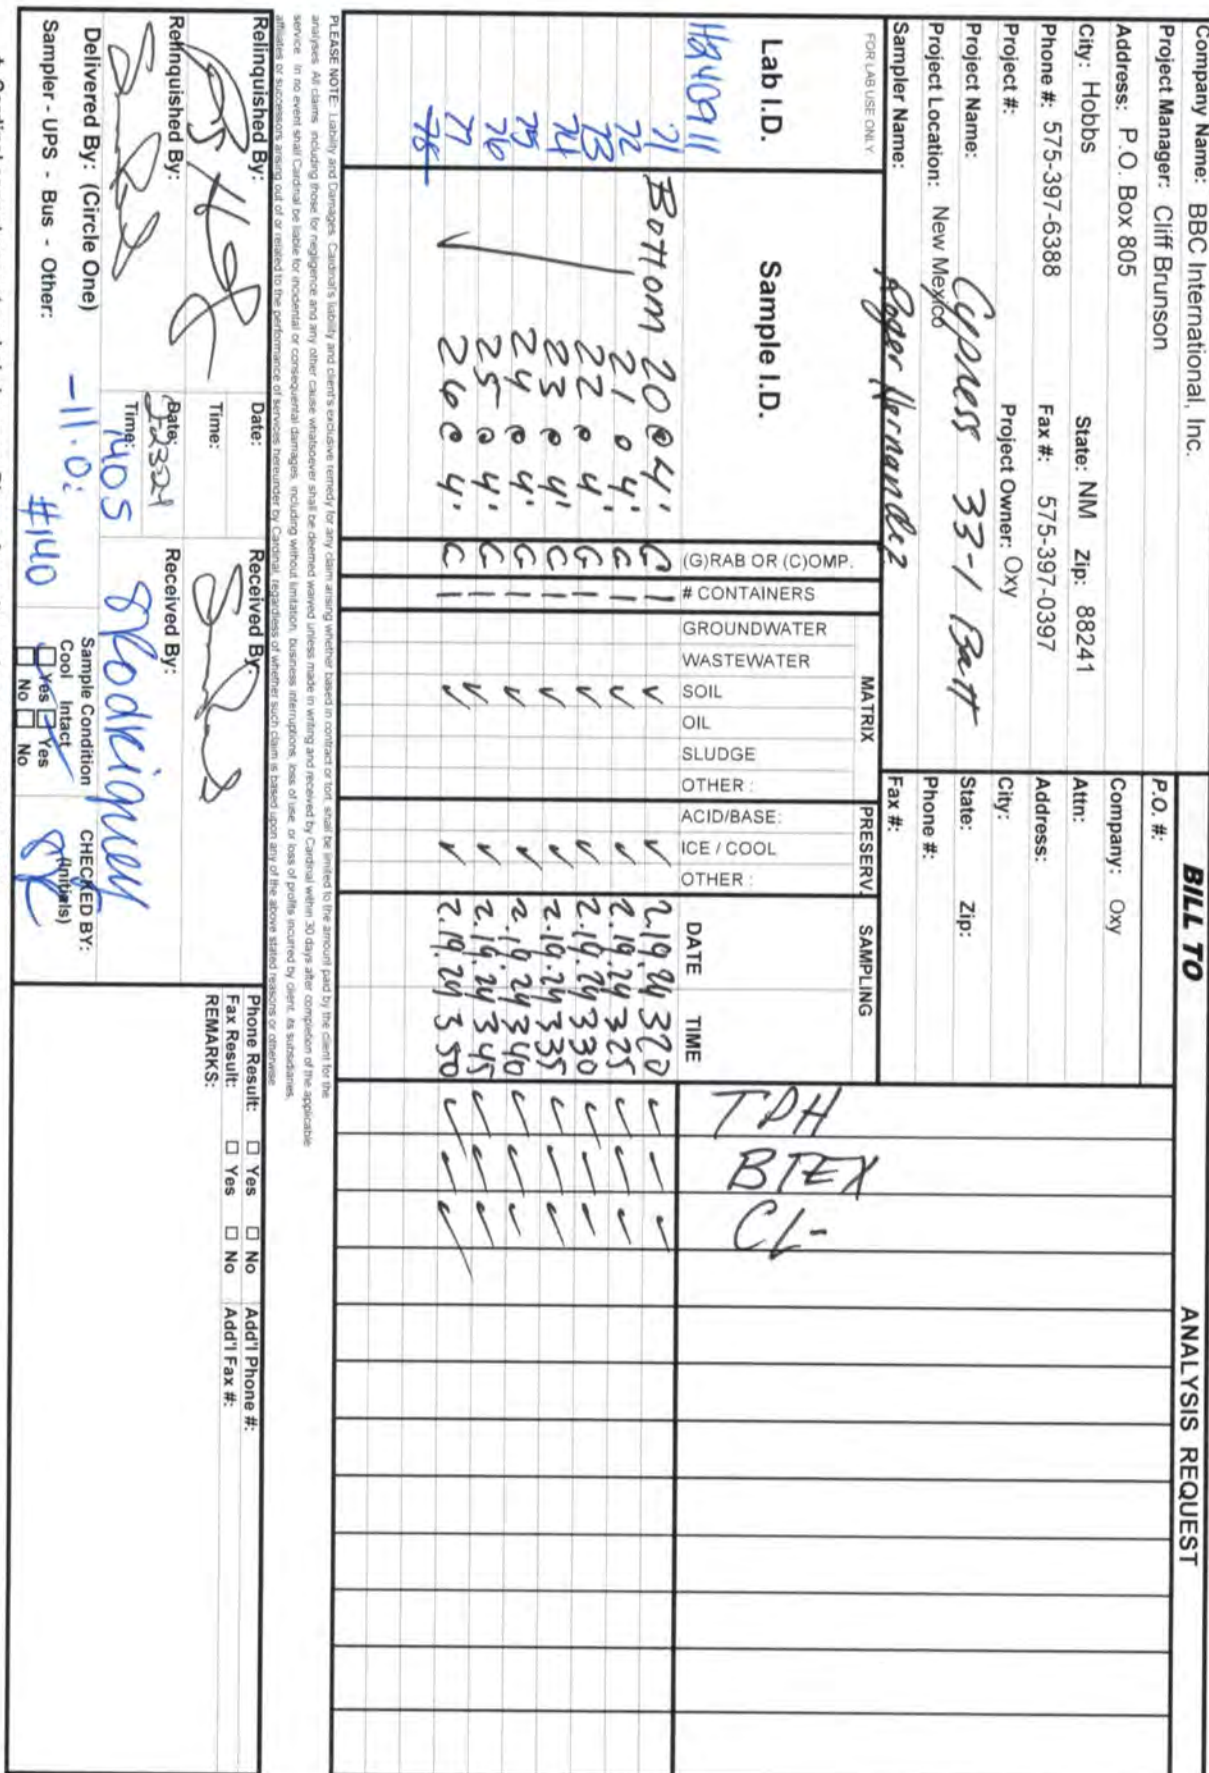 Company Name: BBC International, Inc.
Project Manager: Cliff Brunson
Address: P.O. Box 805
City: Hobbs State: NM Zip: 88241
Phone #: 575-397-6388 Fax #: 575-397-0397
Project #: Project Owner: Oxy
Project Name: Cypress 33-1 Batt
Project Location: New Mexico
Sampler Name: Roger Hernandez
BILL TO
P.O. #:
Company: Oxy
Attn:
Address:
City:
State: Zip:
Phone #:
Fax #:
ANALYSIS REQUEST
TPH
BTEX
CL-
FOR LAB USE ONLY
Lab I.D. Sample I.D. (G)RAB OR (C)OMP. # CONTAINERS
MATRIX
GROUNDWATER
WASTEWATER
SOIL
OIL
SLUDGE
OTHER :
PRESERV.
ACID/BASE:
ICE / COOL
OTHER :
SAMPLING
DATE TIME
H240911
71 Bottom 20 @ 4' G 1 ✓ ✓ 2.19.24 320 ✓ ✓ ✓
72 21 @ 4' G 1 ✓ ✓ 2.19.24 325 ✓ ✓ ✓
73 22 @ 4' G 1 ✓ ✓ 2.19.24 330 ✓ ✓ ✓
74 23 @ 4' G 1 ✓ ✓ 2.19.24 335 ✓ ✓ ✓
75 24 @ 4' G 1 ✓ ✓ 2.19.24 340 ✓ ✓ ✓
76 25 @ 4' G 1 ✓ ✓ 2.19.24 345 ✓ ✓ ✓
77 26 @ 4' G 1 ✓ ✓ 2.19.24 350 ✓ ✓ ✓
78
PLEASE NOTE: Liability and Damages. Cardinal's liability and client's exclusive remedy for any claim arising whether based in contract or tort, shall be limited to the amount paid by the client for the
analyses. All claims including those for negligence and any other cause whatsoever shall be deemed waived unless made in writing and received by Cardinal within 30 days after completion of the applicable
service. In no event shall Cardinal be liable for incidental or consequental damages, including without limitation, business interruptions, loss of use, or loss of profits incurred by client, its subsidiaries,
affiliates or successors arising out of or related to the performance of services hereunder by Cardinal, regardless of whether such claim is based upon any of the above stated reasons or otherwise.
Relinquished By:
Date:
Time:
Received By:
Relinquished By:
Date:
Time: 1405
Received By:
SRodriguez
Delivered By: (Circle One)
-11.0:
#140
Sampler - UPS - Bus - Other:
Sample Condition
Cool Intact
Yes Yes
No No
CHECKED BY:
(Initials)
Phone Result: Yes No Add'l Phone #:
Fax Result: Yes No Add'l Fax #:
REMARKS: